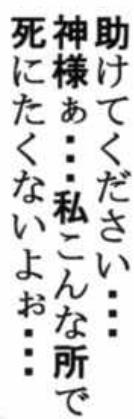 助けてください…
神様ぁ…私こんな所で
死にたくないよぉ…